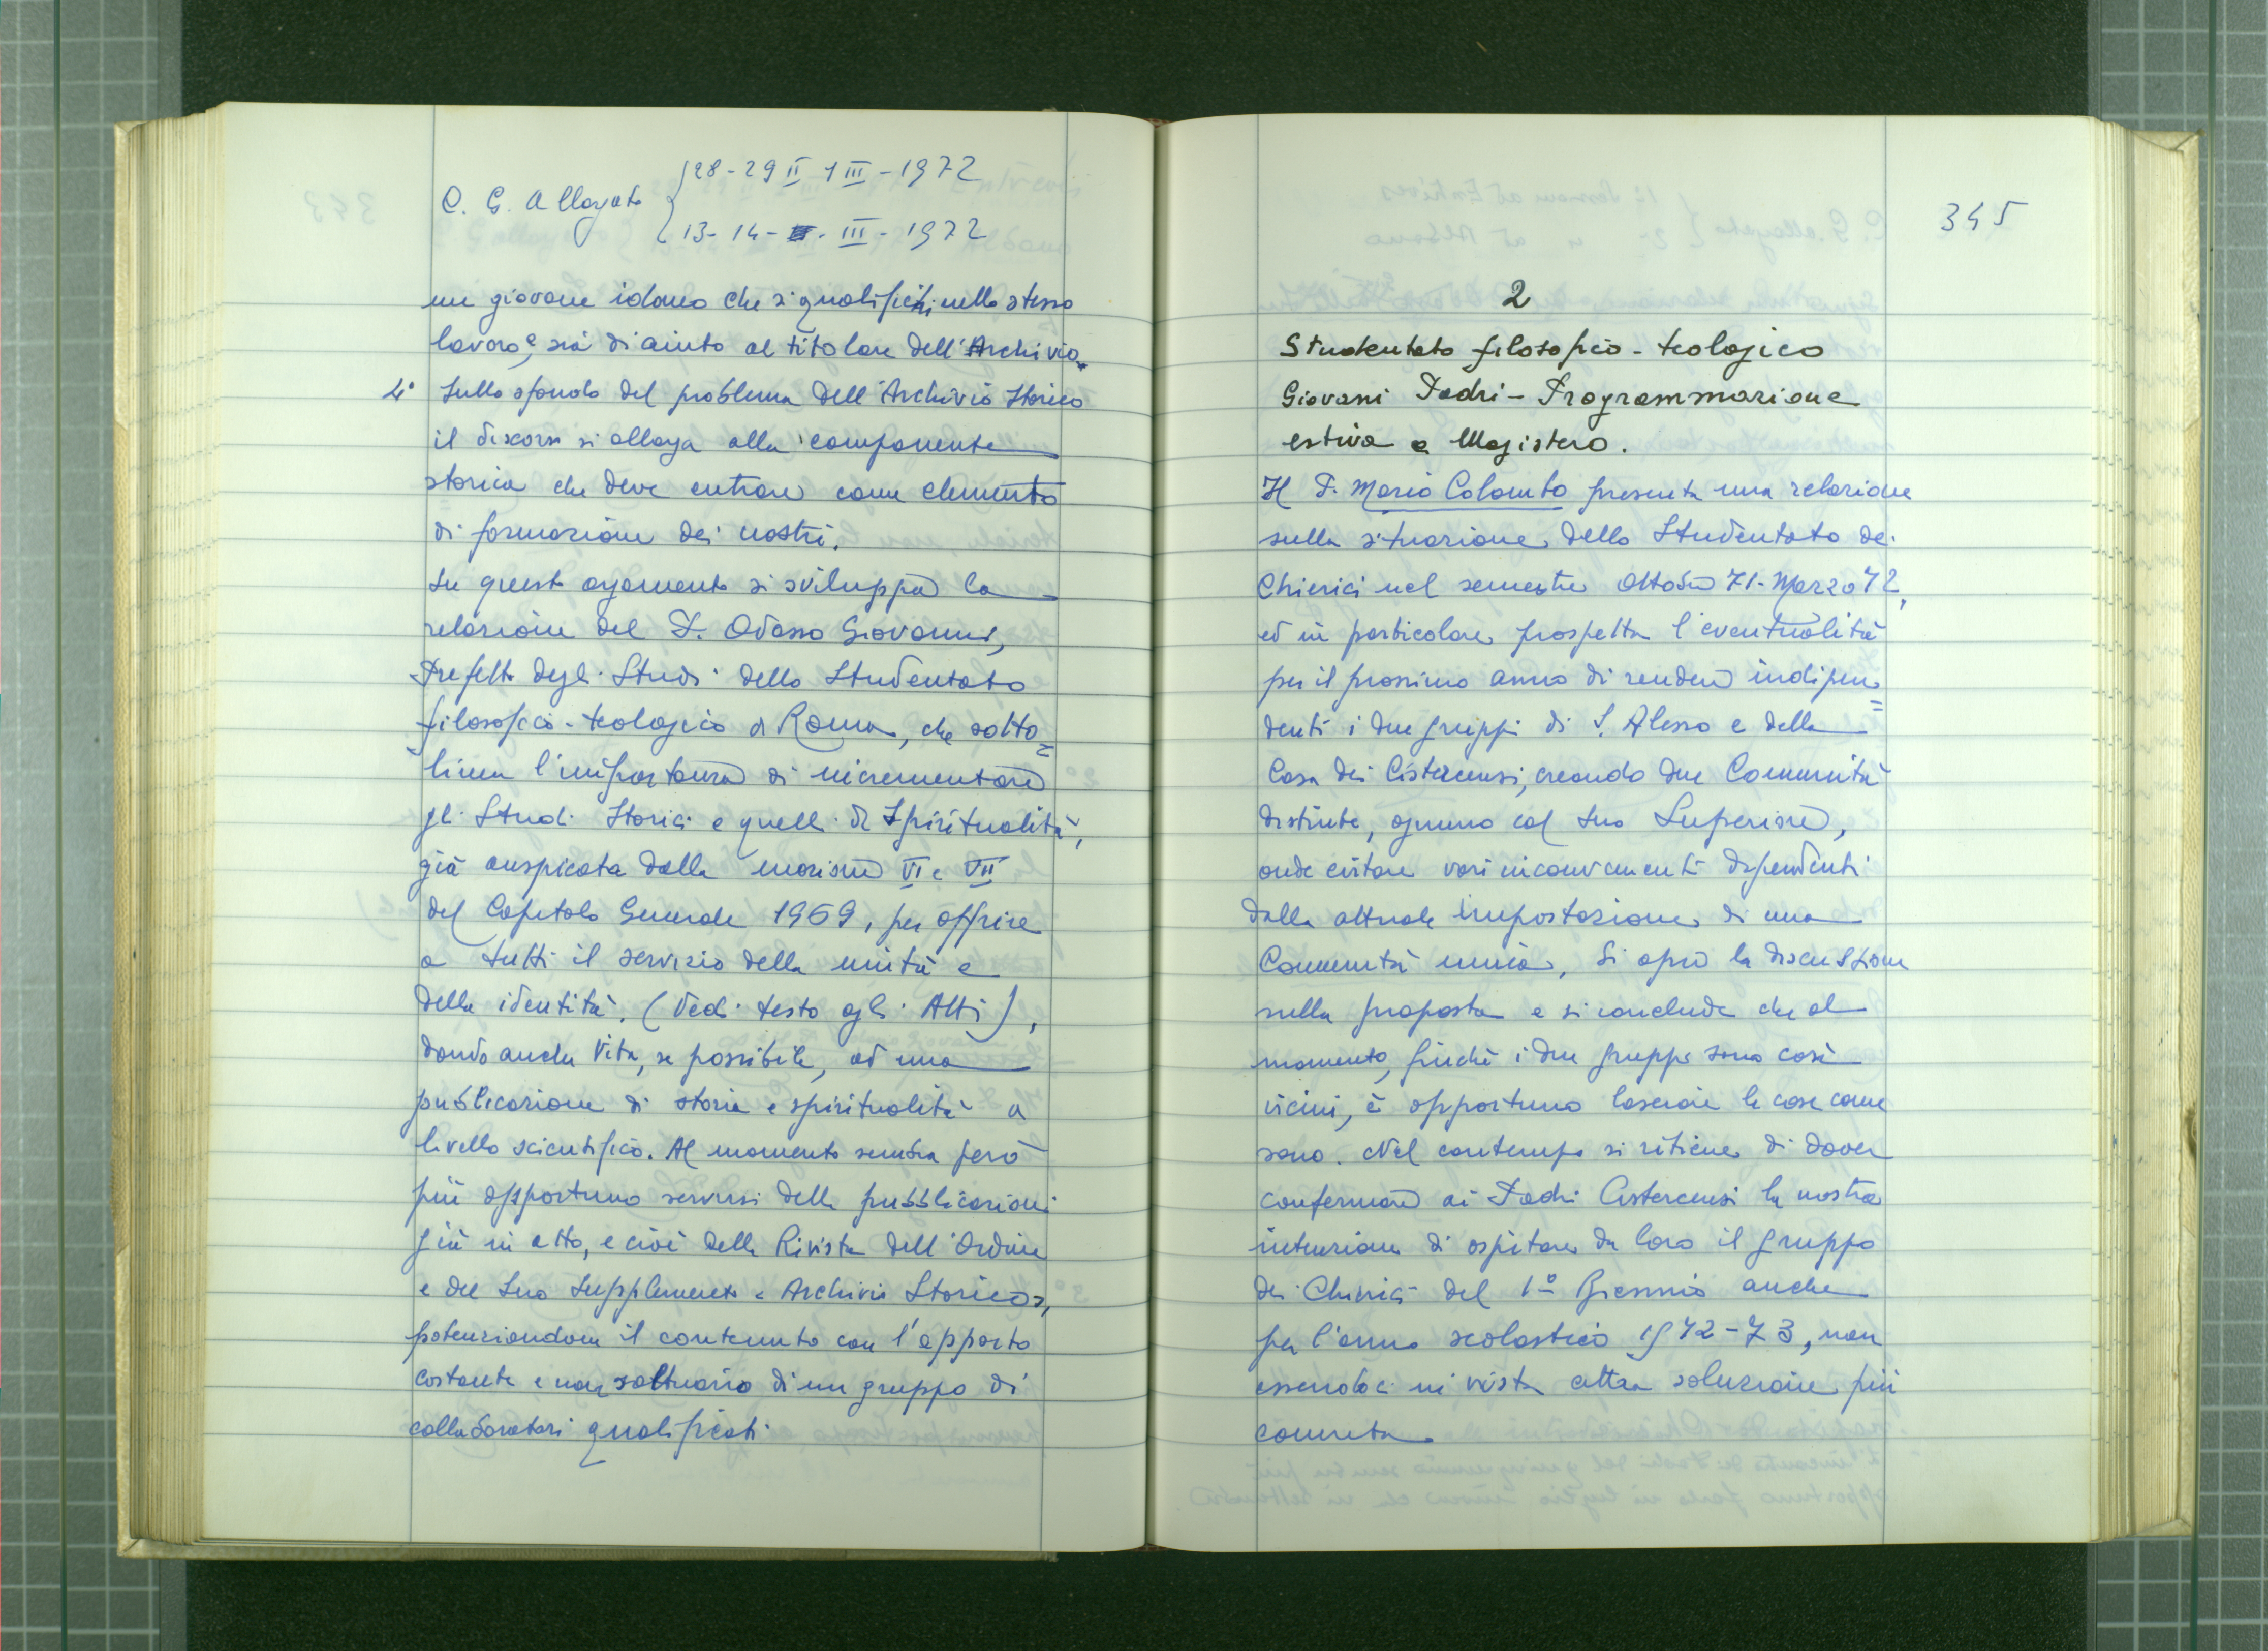 C. G. Allargato { 28-29 II 1 III - 1972
13-14- III - 1972
un giovane idoneo che si qualifichi nello stesso
lavoro e sia di aiuto al titolare dell'Archivio.
4° Sullo sfondo del problema dell'Archivio Storico
il discorso si allarga alla componente
storica che deve entrare come elemento
di formazione dei nostri.
Su questo argomento si sviluppa la
relazione del P. Odasso Giovanni,
Prefetto degli Studi dello Studentato
filosofico-teologico di Roma, che sotto=
linea l'importanza di incrementare
gli Studi Storici e quelli di Spiritualità,
già auspicata dalle mozioni VI e VII
del Capitolo Generale 1969, per offrire
a tutti il servizio della unità e
della identità. (Vedi testo agli Atti),
dando anche vita, se possibile, ad una
pubblicazione di storia e spiritualità a
livello scientifico. Al momento sembra però
più opportuno servirsi delle pubblicazioni
già in atto, e cioè della Rivista dell'Ordine
e del suo Supplemento « Archivio Storico»,
potenziandone il contenuto con l'apporto
costante e non saltuario di un gruppo di
collaboratori qualificati
345
2
Studentato filosofico-teologico
Giovani Padri - Programmazione
estiva e Magistero.
Il P. Mario Colombo presenta una relazione
sulla situazione dello Studentato dei
Chierici nel semestre Ottobre 71-Marzo 72,
ed in particolare prospetta l'eventualità
per il prossimo anno di rendere indipen=
denti i due gruppi di S. Alessio e della
Casa dei Cistercensi, creando due Comunità
distinte, ognuno col suo Superiore,
onde evitare vari inconvenienti dipendenti
dalla attuale impostazione di una
Comunità unica. Si apre la discussione
sulla proposta e si conclude che al
momento, finché i due gruppi sono così
vicini, è opportuno lasciare le cose come
sono. Nel contempo si ritiene di dover
confermare ai Padri Cistercensi la nostra
intenzione di ospitare da loro il gruppo
dei Chierici del 1° Biennio anche
per l'anno scolastico 1972-73, non
essendoci in vista altra soluzione più
concreta.